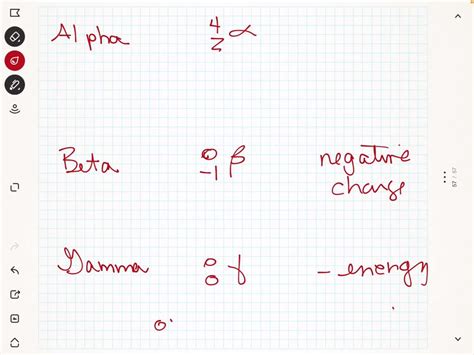 Alpha 4 2 α
Beta 0 -1 β negative charge
Gamma 0 0 γ - energy
0
57 / 57